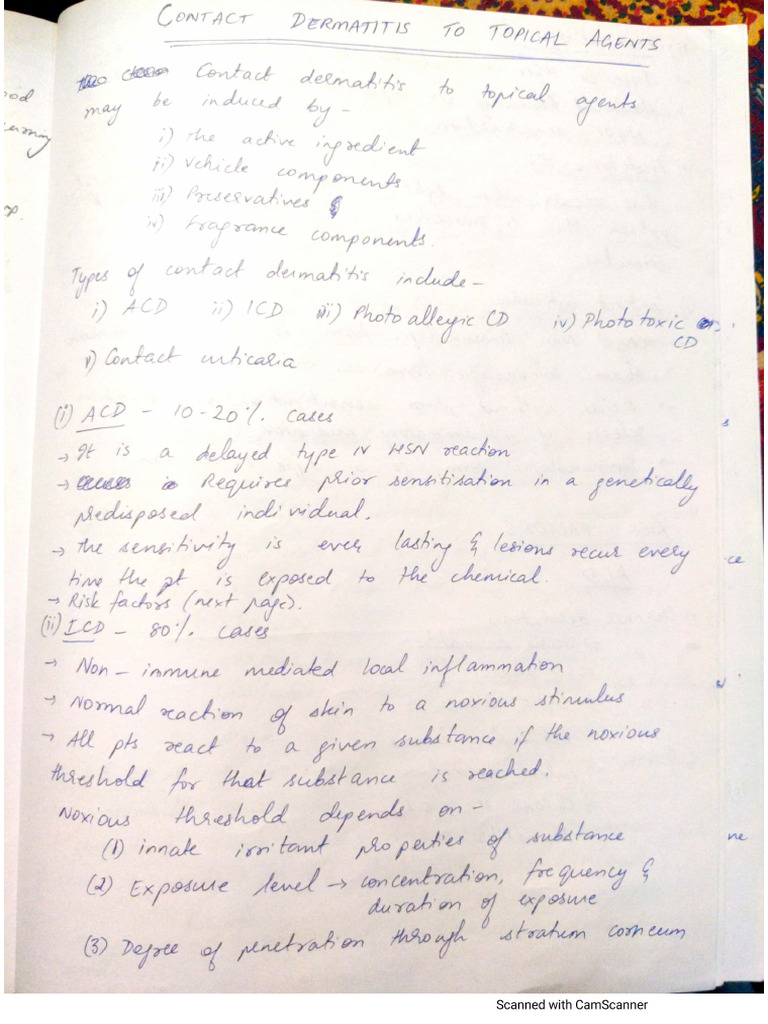 CONTACT DERMATITIS TO TOPICAL AGENTS
Contact dermatitis to topical agents
may be induced by -
i) the active ingredient
ii) vehicle components
iii) Preservatives
iv) Fragrance components.
Types of contact dermatitis include -
i) ACD ii) ICD iii) Photo allergic CD iv) Photo toxic
CD
v) Contact urticaria
(i) ACD - 10-20% cases
→ It is a delayed type IV HSN reaction
→ Requires prior sensitisation in a genetically
predisposed individual.
→ the sensitivity is ever lasting & lesions recur every
time the pt is exposed to the chemical.
→ Risk factors (next page).
(ii) ICD - 80% cases
→ Non-immune mediated local inflammation
→ Normal reaction of skin to a noxious stimulus
→ All pts react to a given substance if the noxious
threshold for that substance is reached.
Noxious threshold depends on -
(1) innate irritant properties of substance
(2) Exposure level → concentration, frequency &
duration of exposure
(3) Degree of penetration through stratum corneum
Scanned with CamScanner